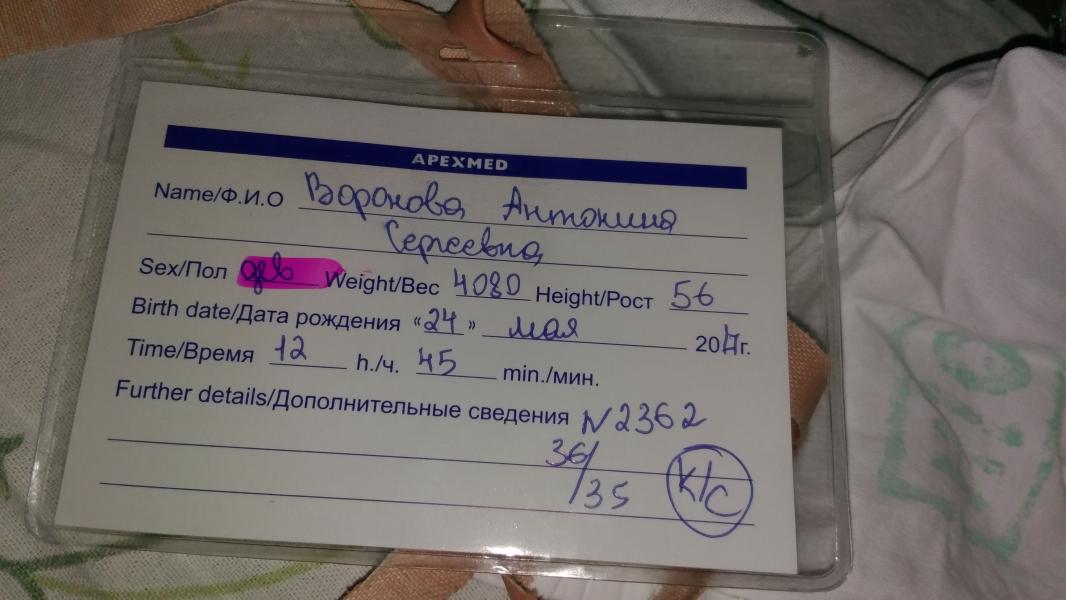 APEXMED
Name/Ф.И.О Воронова Антонина
Сергеевна
Sex/Пол дев Weight/Вес 4080 Height/Рост 56
Birth date/Дата рождения «24» мая 2017г.
Time/Время 12 h./ч. 45 min./мин.
Further details/Дополнительные сведения N2362
36/
/35 К/С